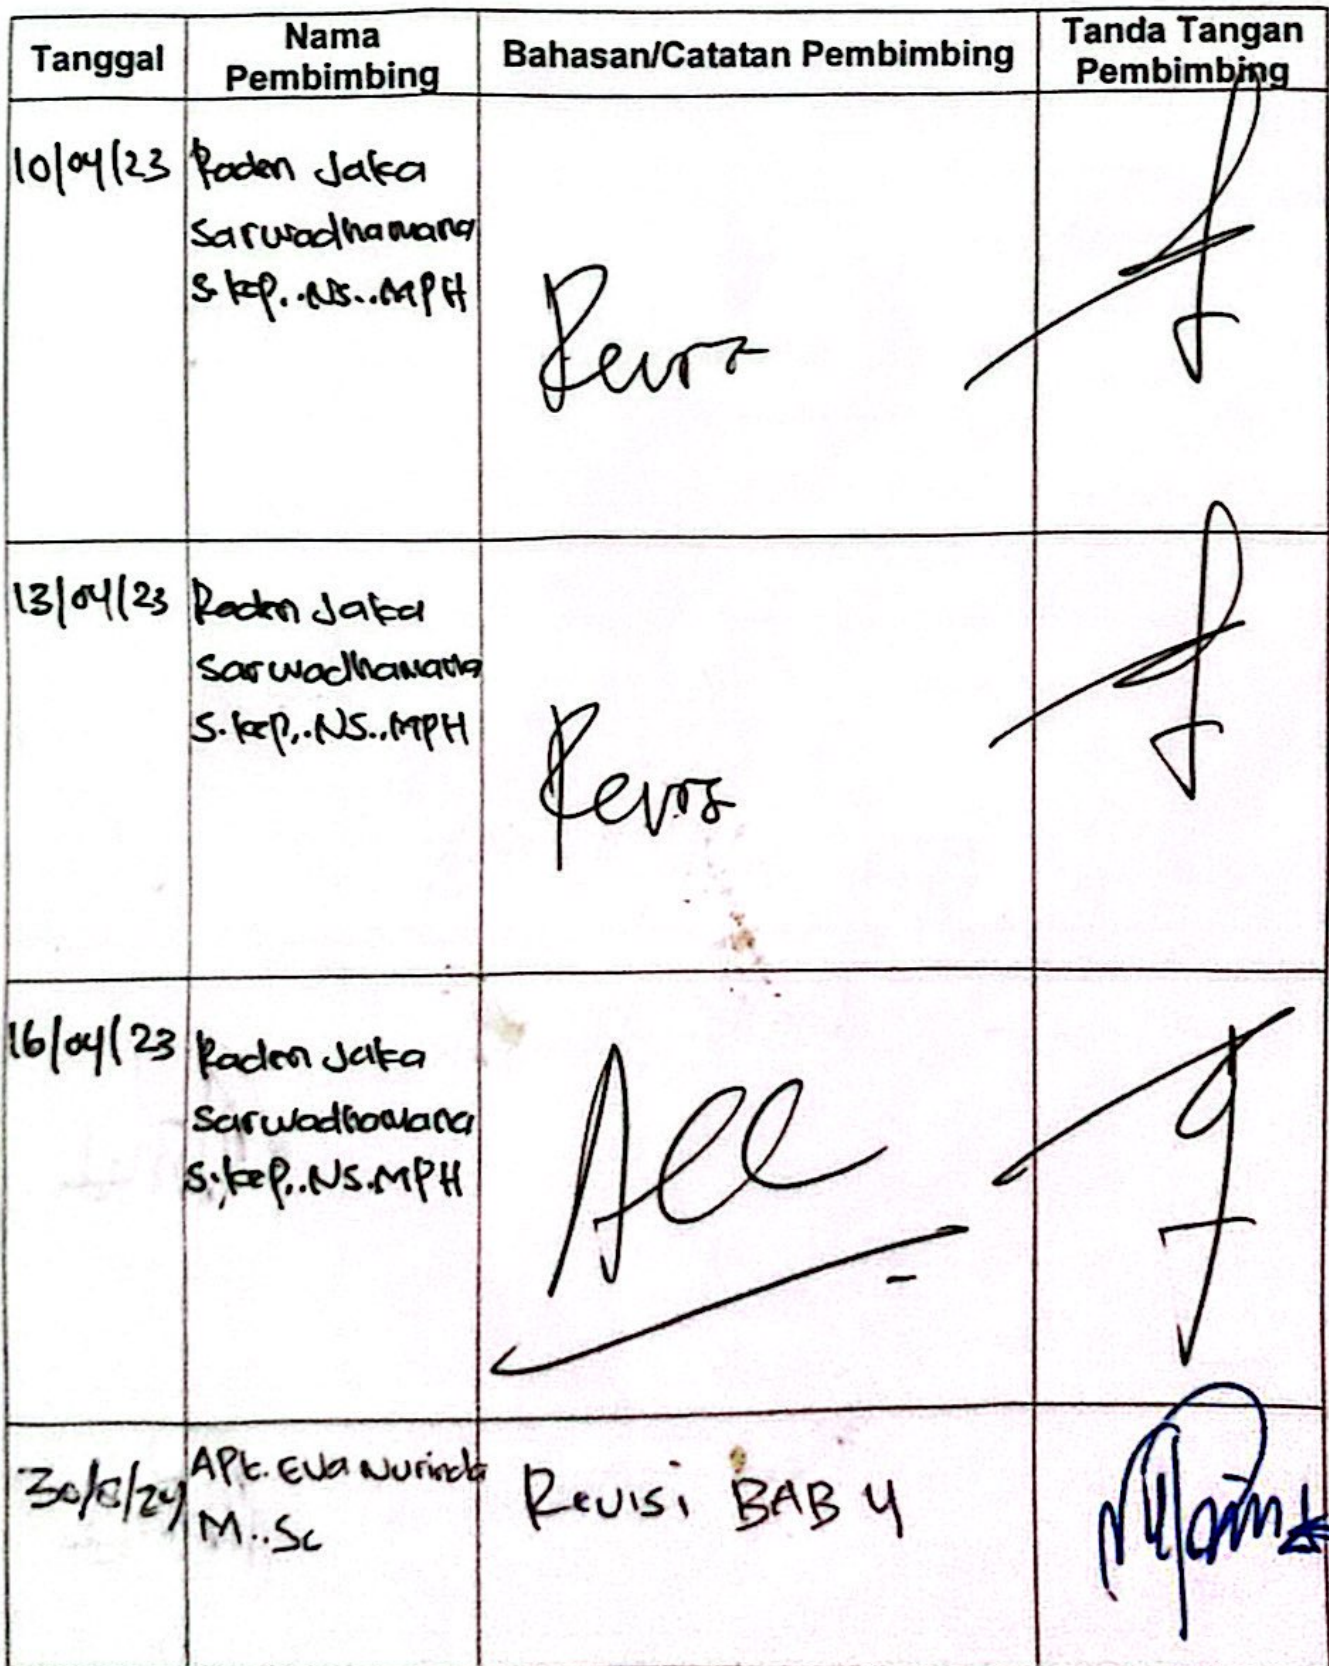 Tanggal
Nama
Pembimbing
Bahasan/Catatan Pembimbing
Tanda Tangan
Pembimbing
10/04/23
Raden Jaka
Sarwadhamana
S.kep..NS..MPH
Revisi
13/04/23
Raden Jaka
Sarwadhamana
S.kep,.NS..MPH
Revisi
16/04/23
Raden Jaka
Sarwadhamana
S.kep,.NS.MPH
Acc
APt. Eva Nurinda
M..Sc
Revisi BAB 4